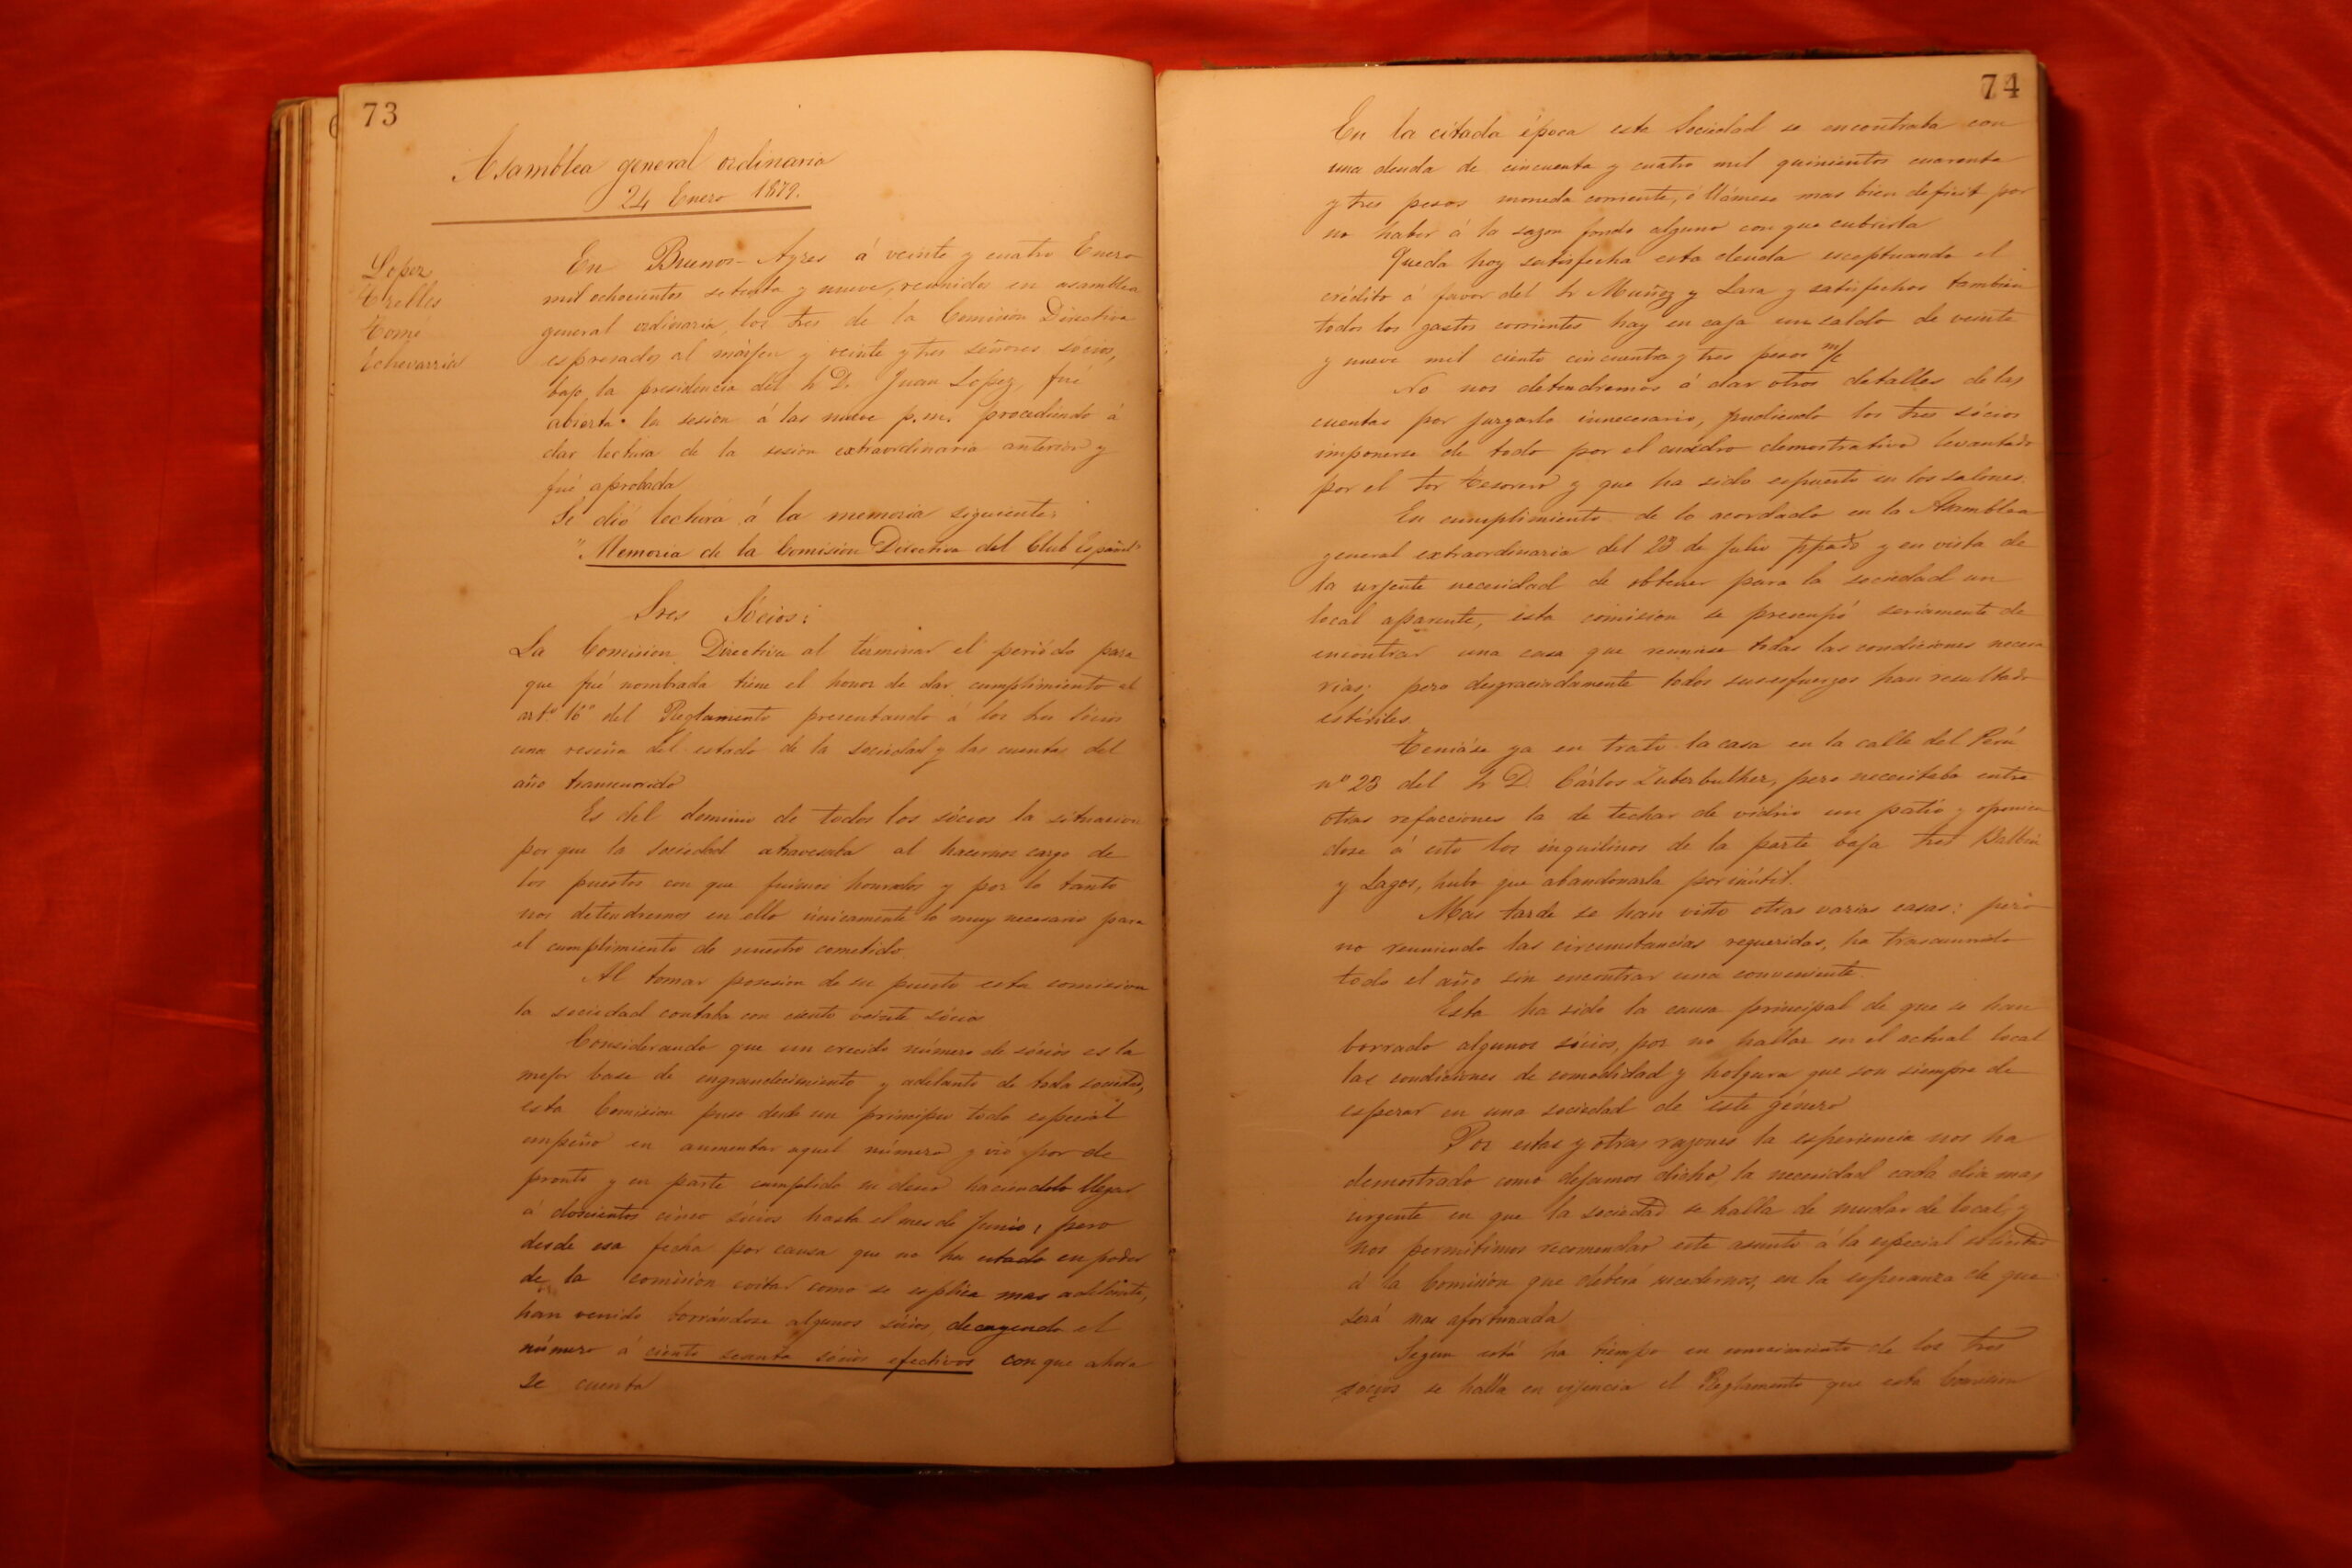 73
Asamblea general ordinaria
24 Enero 1879.
Lopez
Trelles
Tomé
Echevarría
En Buenos-Ayres á veinte y cuatro Enero
mil ochocientos setenta y nueve, reunidos en asamblea
general ordinaria, los Sres de la Comisión Directiva
espresados al márjen y veinte y tres señores sócios,
bajo la presidencia del Sr D. Juan Lopez, fué
abierta la sesion á las nueve p.m. procediendo á
dar lectura de la sesion extraordinaria anterior y
fué aprobada
Se dió lectura á la memoria siguiente:
"Memoria de la Comisión Directiva del Club Español"
Sres Sócios:
La Comision Directiva al términar el período para
que fué nombrada tiene el honor de dar cumplimiento al
artº 16º del Reglamento presentando á los Sres sócios
una reseña del estado de la sociedad y las cuentas del
año transcurrido
Es del dominio de todos los sócios la situacion
por que la sociedad atravesaba al hacernos cargo de
los puestos con que fuimos honrados y por lo tanto
nos detendremos en ello únicamente lo muy necesario para
el cumplimiento de nuestro cometido.
Al tomar posesion de su puesto esta comision
la sociedad contaba con ciento veinte sócios
Considerando que un crecido número de sócios es la
mejor base de engrandecimiento y adelanto de toda sociedad,
esta Comision puso desde un principio todo especial
empeño en aumentar aquel número y vió por de
pronto y en parte cumplido su deseo haciendolo llegar
á doscientos cinco sócios hasta el mes de Junio; pero
desde esa fecha por causa que no ha estado en poder
de la comision evitar como se esplica mas adelante,
han venido borrándose algunos sócios, decayendo el
número á ciento sesenta sócios efectivos con que ahora
se cuenta
74
En la citada época esta Sociedad se encontraba con
una deuda de cincuenta y cuatro mil quinientos cuarenta
y tres pesos moneda corriente, ó llámese mas bien deficit por
no haber á la sazon fondo alguno con que cubrirla
Queda hoy satisfecha esta deuda esceptuando el
crédito á favor del Sr Muñoz y Lara y satisfechos tambien
todos los gastos corrientes hay en caja un saldo de veinte
y nueve mil ciento cincuenta y tres pesos m/c
No nos detendremos á dar otros detalles de las
cuentas por juzgarlo innecesario, pudiendo los Sres sócios
imponerse de todo por el cuadro demostrativo levantado
por el Sor tesorero y que ha sido espuesto en los salones.
En cumplimiento de lo acordado en la Asamblea
general extraordinaria del 23 de Julio ppado y en vista de
la urjente necesidad de obtener para la sociedad un
local aparente, esta comision se preocupó seriamente de
encontrar una casa que reuniese todas las condiciones necesa
rias; pero desgraciadamente todos sus esfuerzos han resultado
estériles.
Teniáse ya en trato la casa en la calle del Perú
nº 23 del Sr D. Cárlos Zuberbulher, pero necesitaba entre
otras refacciones la de techar de vidrio un patio y oponien
dose á esto los inquilinos de la parte baja Sres Balbin
y Lagos, hubo que abandonarla por inútil.
Mas tarde se han visto otras varias casas: pero
no reuniendo las circunstancias requeridas, ha trascurrido
todo el año sin encontrar una conveniente.
Esta ha sido la causa principal de que se han
borrado algunos sócios, por no hallar en el actual local
las condiciones de comodidad y holgura que son siempre de
esperar en una sociedad de este género
Por estas y otras razones la esperiencia nos ha
demostrado como dejamos dicho, la necesidad cada dia mas
urgente en que la sociedad se halla de mudar de local, y
nos permitimos recomendar este asunto á la especial solicitud
á la Comision que deberá sucedernos, en la esperanza de que
será mas afortunada
Segun está ha tiempo en conocimiento de los Sres
socios se halla en vijencia el Reglamento que esta Comision